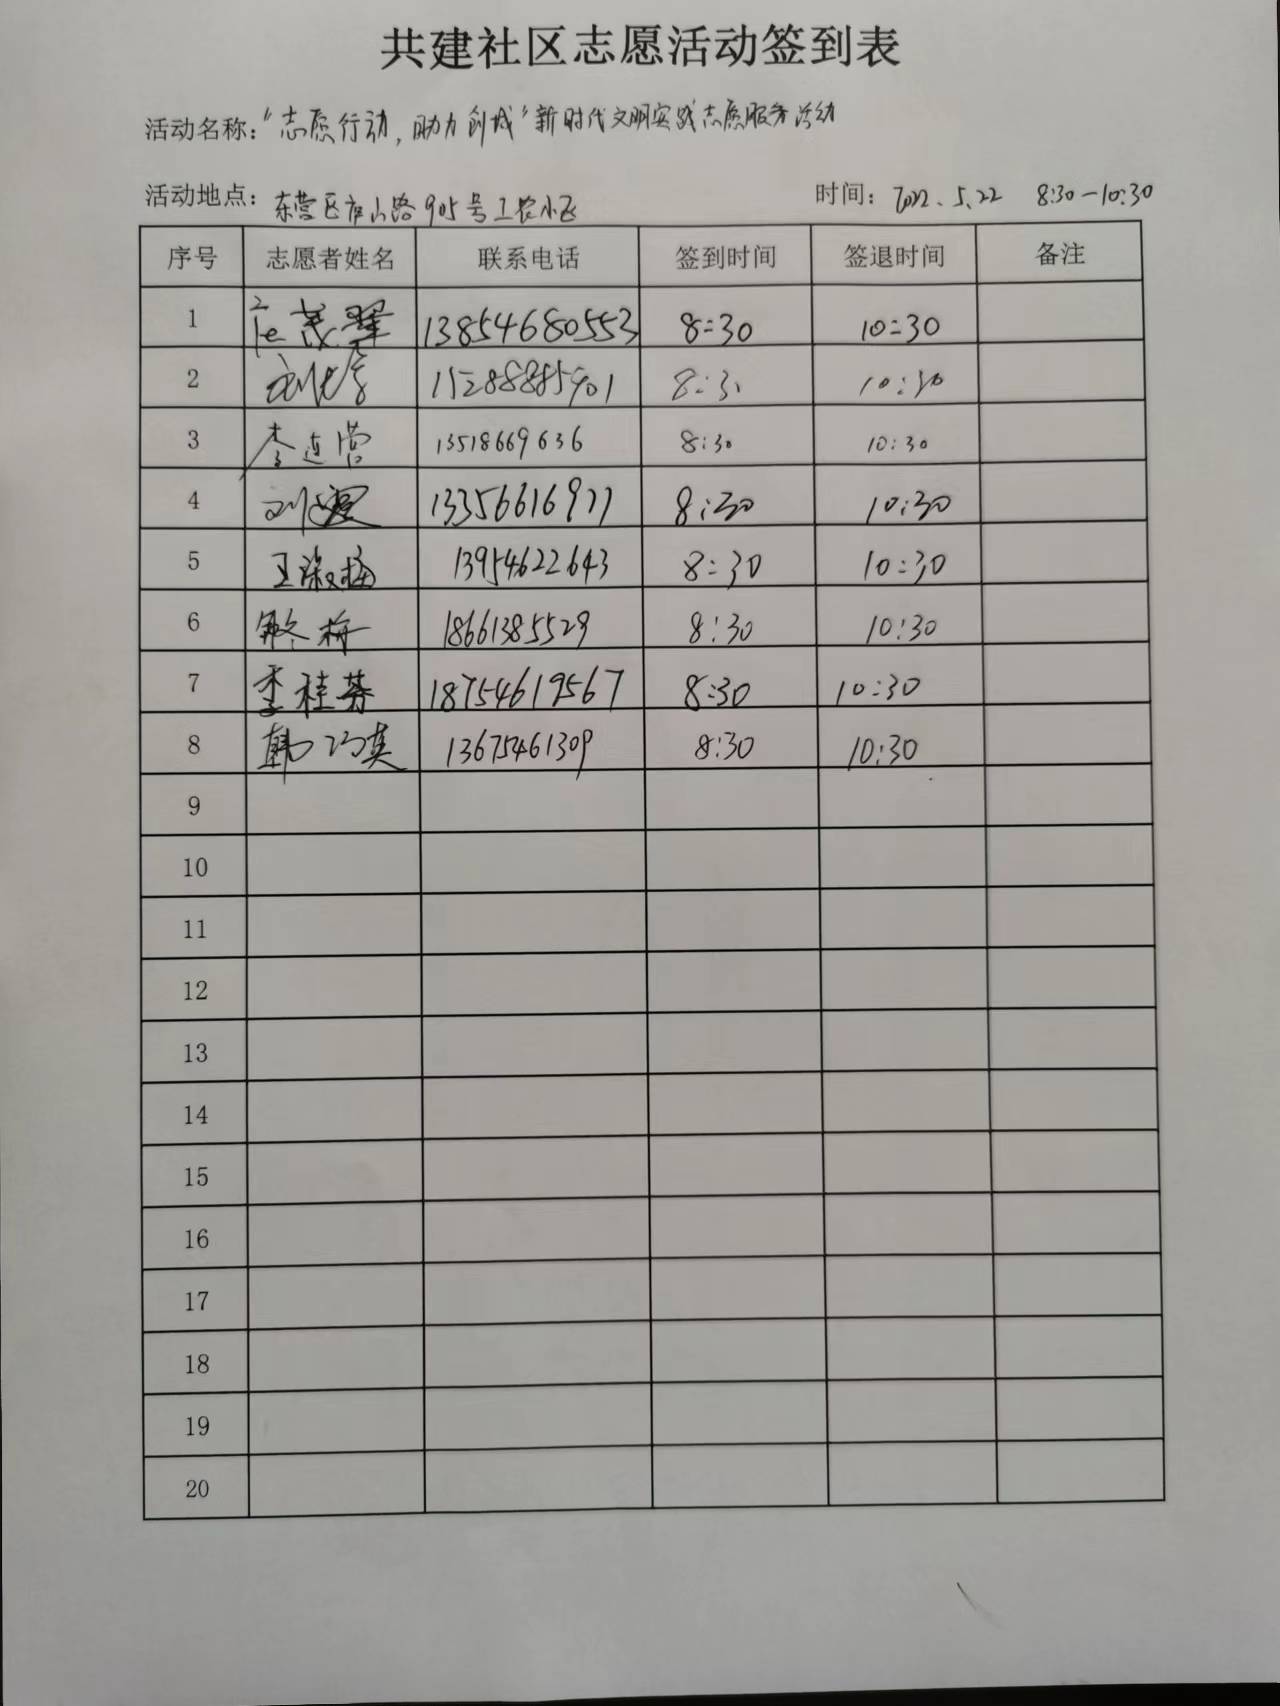 共建社区志愿活动签到表
活动名称："志愿行动，助力创城"新时代文明实践志愿服务活动
活动地点：东营区庐山路905号工农小区 时间：2022.5.22 8:30-10:30
序号 志愿者姓名 联系电话 签到时间 签退时间 备注
1 13854680553 8:30 10:30
2 15288885901 8:30 10:30
3 李连营 13518669636 8:30 10:30
4 13356616977 8:30 10:30
5 王淑梅 13954622643 8:30 10:30
6 18661385529 8:30 10:30
7 李桂芬 18754619567 8:30 10:30
8 韩巧英 13675461309 8:30 10:30
9
10
11
12
13
14
15
16
17
18
19
20